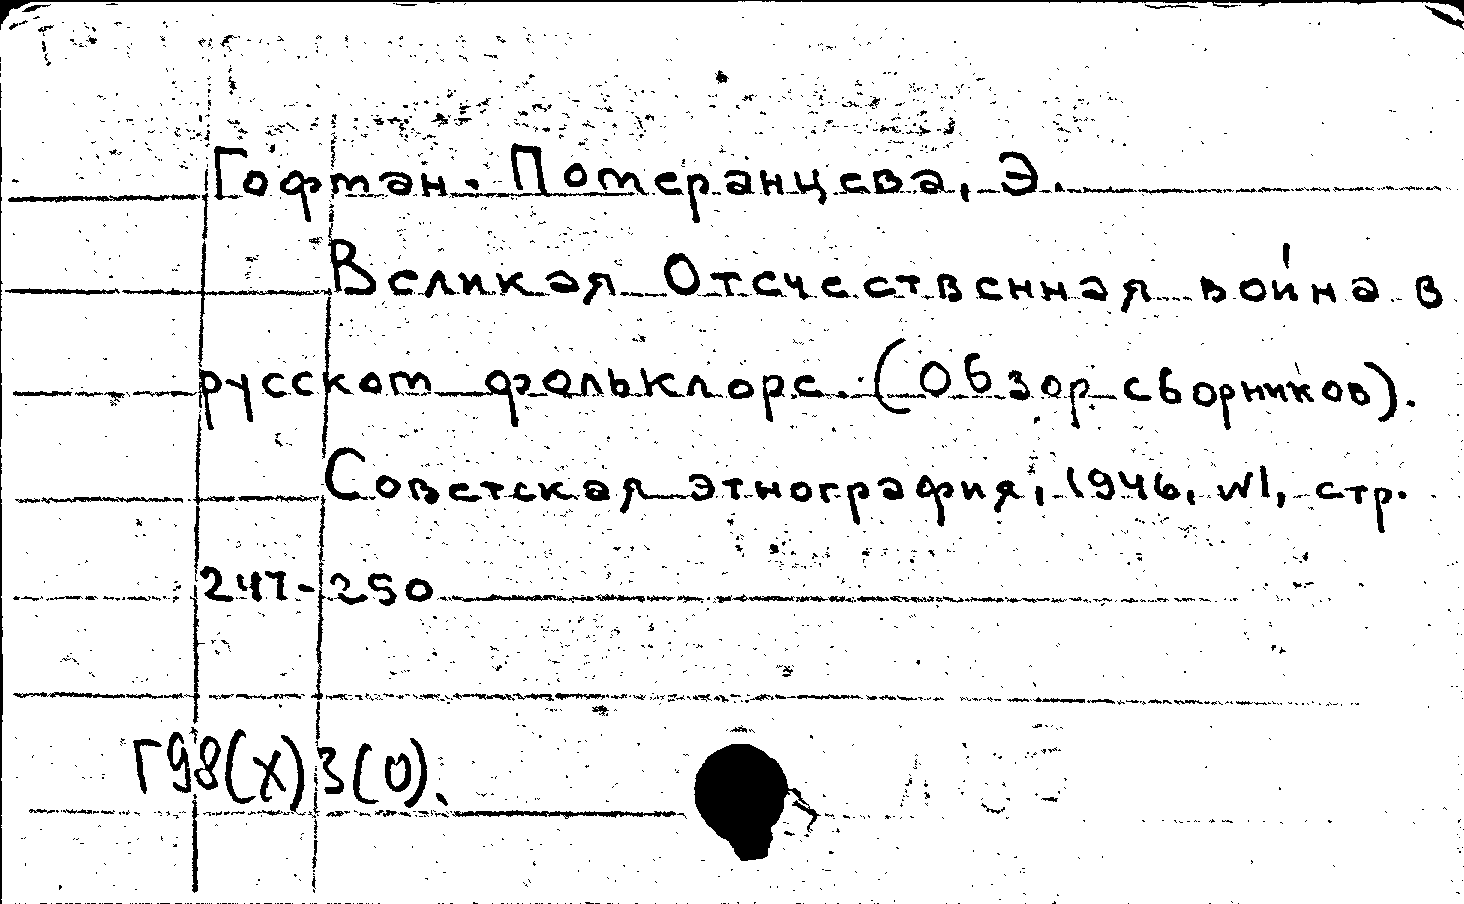 Гофман. Померанцева, Э.
Великая Отечественная война в
русском фольклоре. (Обзор сборников).
Советская этнография, 1946, №1, стр.
247-250
Г98(X)3(0).